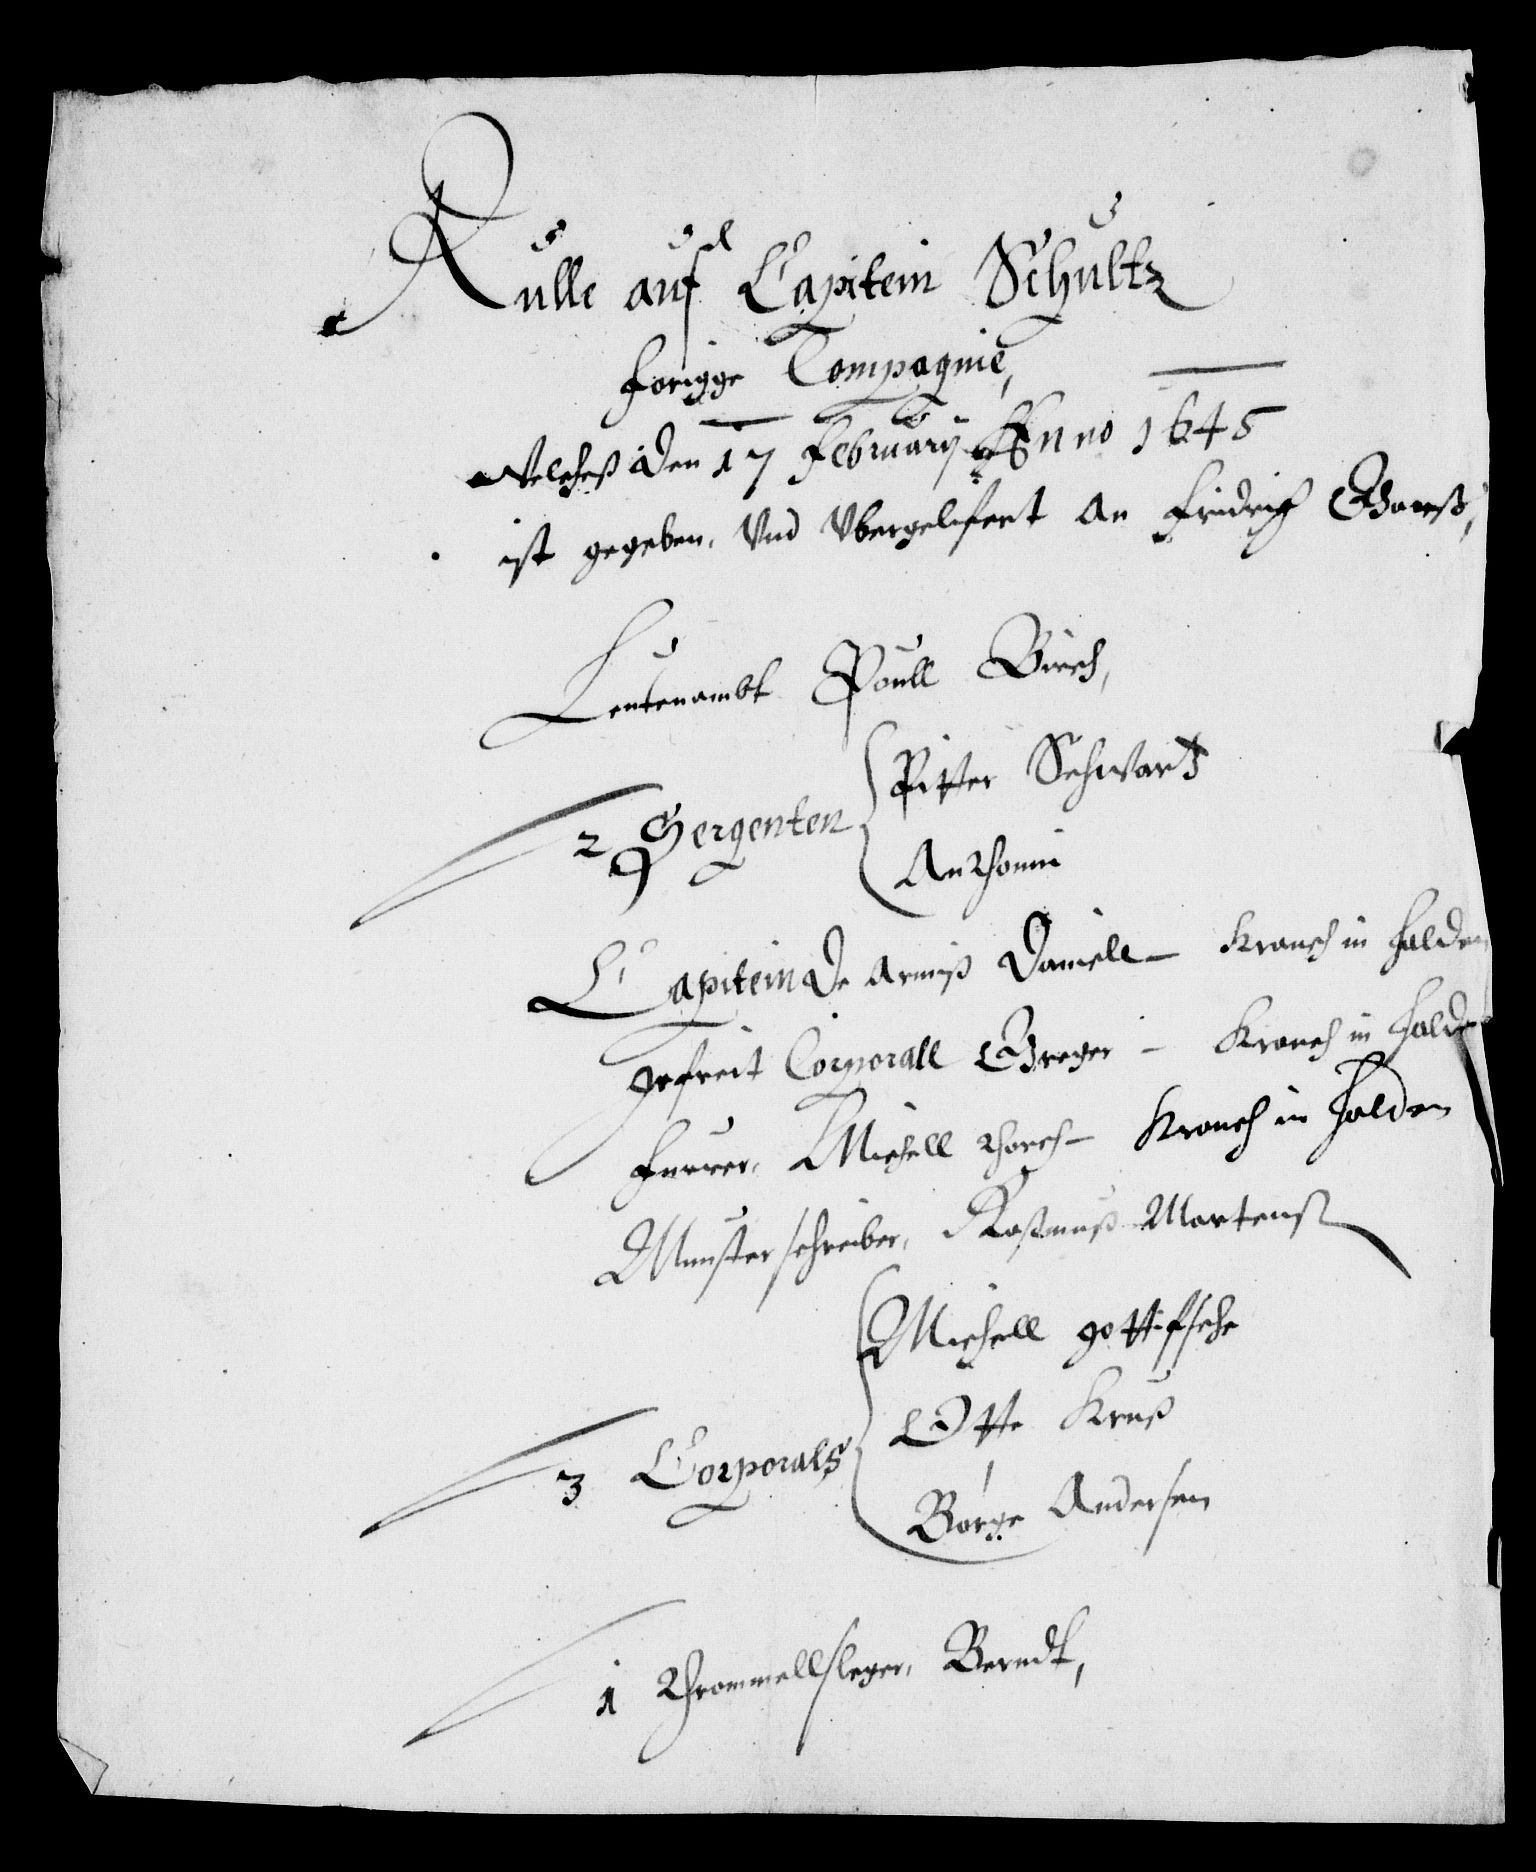 Rulle auf Capitein Schultz
forigge Compagnie,
Welcheß den 17 February Anno 1645
ist gegeben, Und Ubergelifert an Fridrich
Leutenambt Poull Birch,
2 Sergenten
Pitter Schwartz
Anthoni
Capitein de Armiß Daniell – Kranch in Halden
gefreit Corporall Greger – Kranch in Halden
Furrer, Michell – Kranch in Halden
Munsterschreiber, Raßmuß Martenß
3 Corporals
Michell
Otte Kruß
Børge Andersen
1 Thrommellsleger, Berndt,